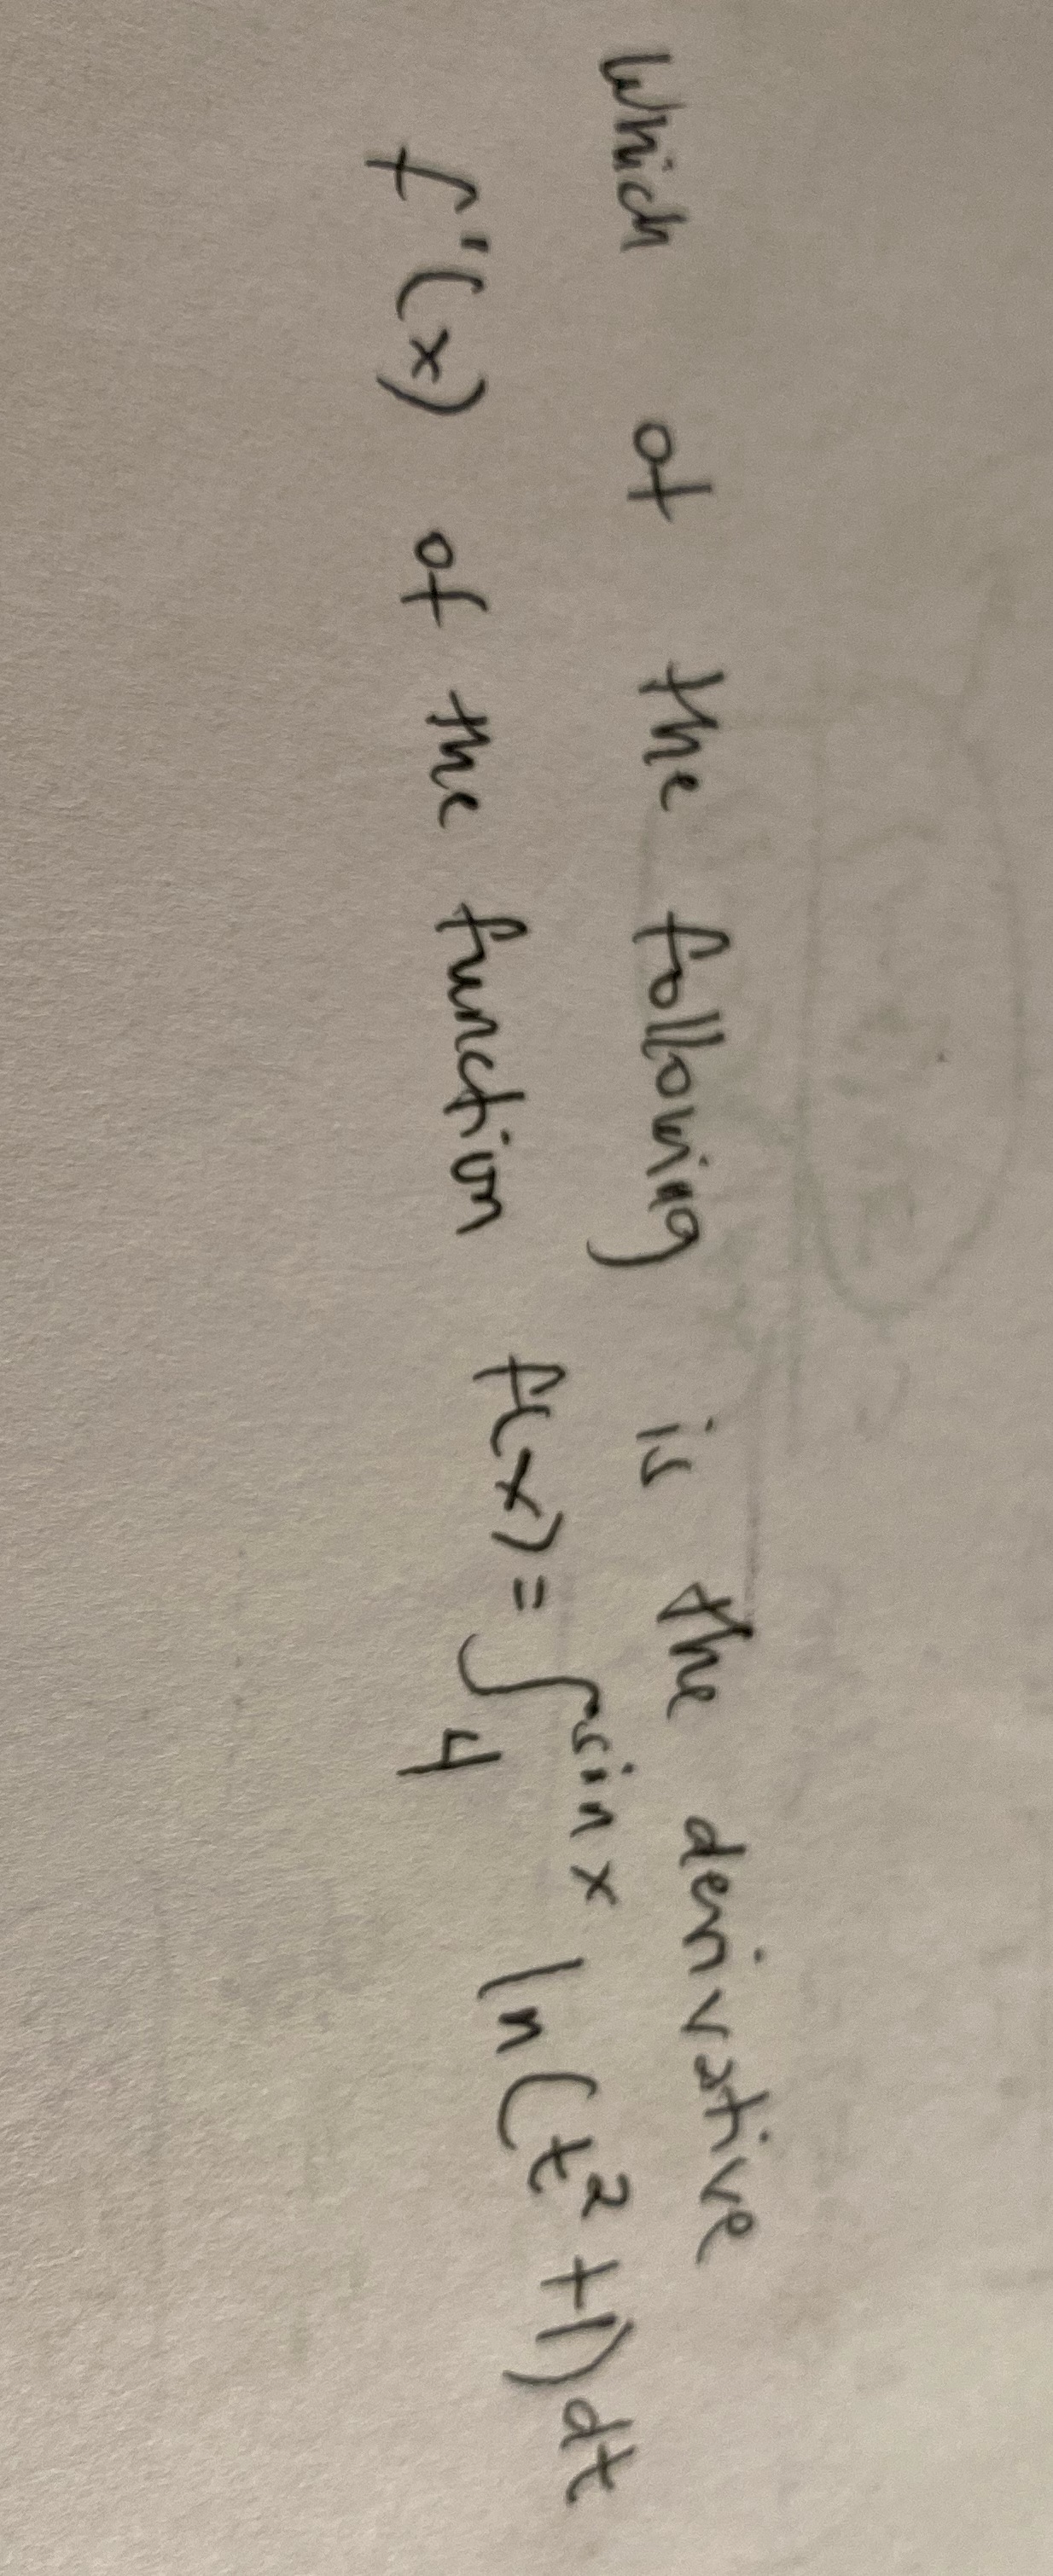 Which of the following is the derivative
f'(x) of the function f(x) = ∫₄^sin x ln(t² + 1) dt